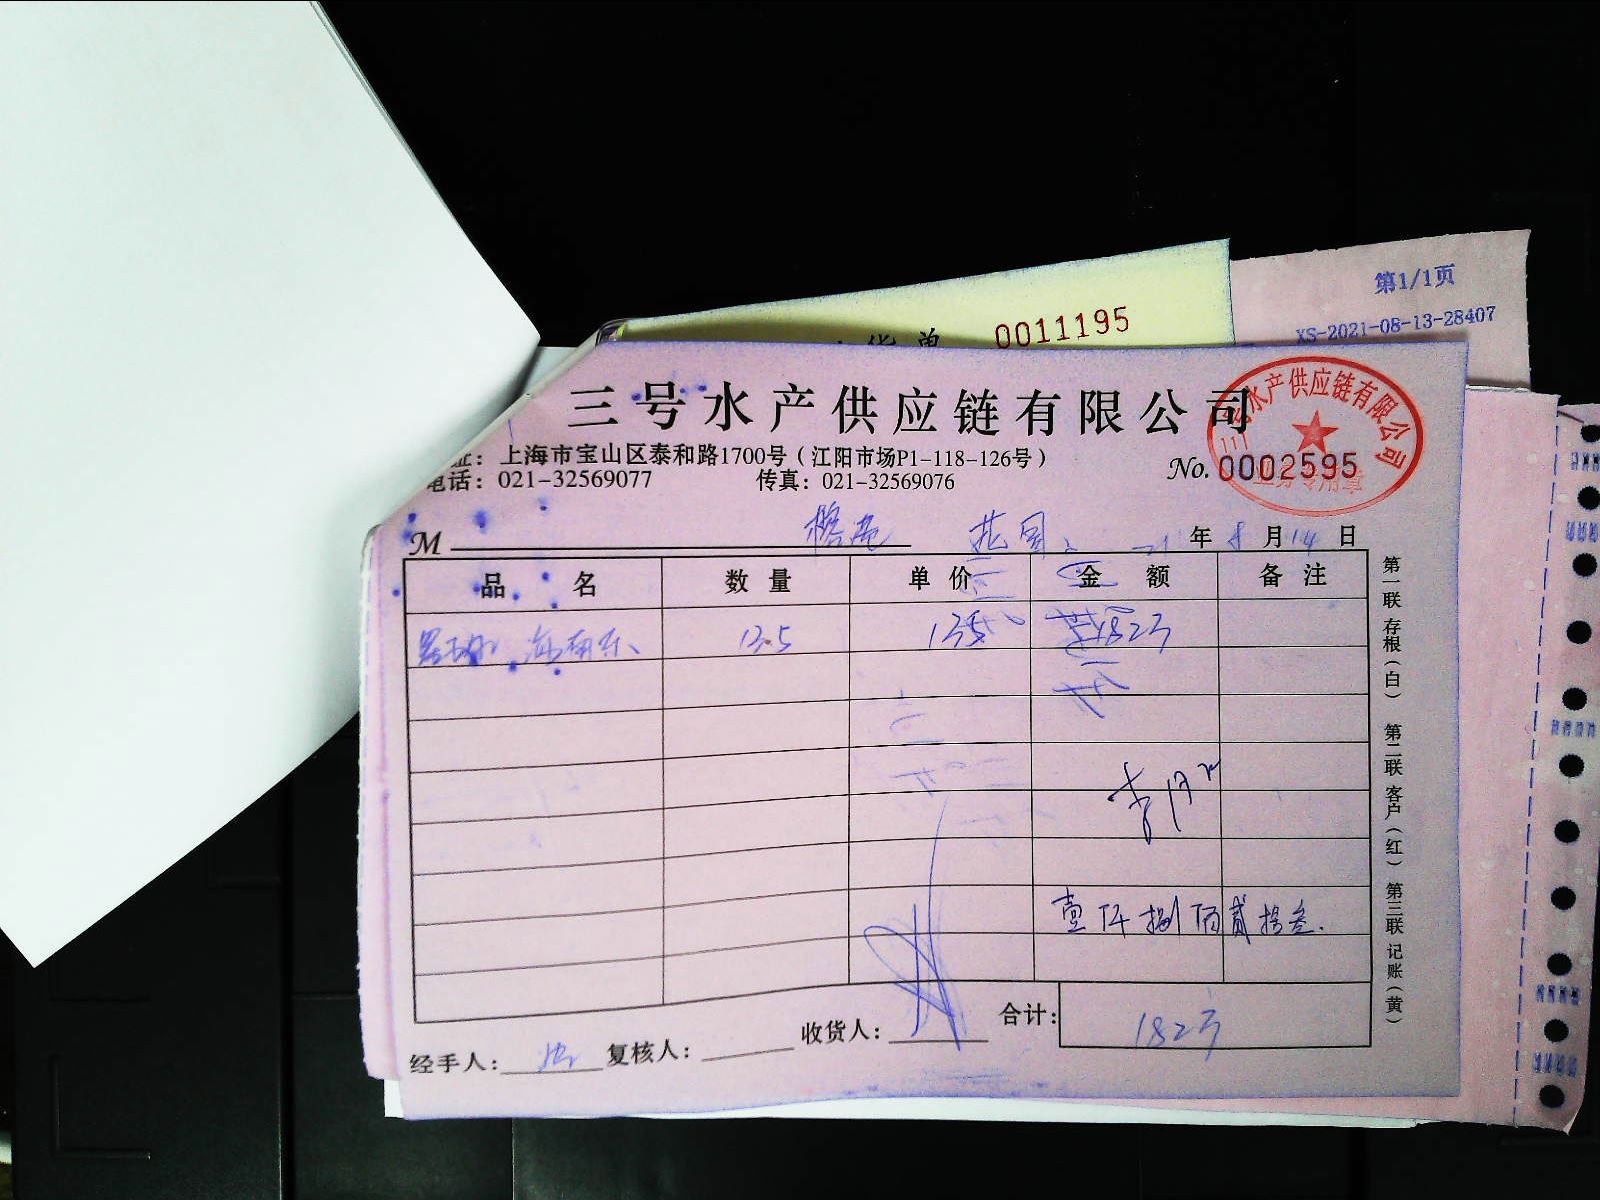 第1/1页
XS-2021-08-13-28407
货单 0011195
三号水产供应链有限公司
址：上海市宝山区泰和路1700号（江阳市场P1-118-126号）
电话：021-32569077 传真：021-32569076
No. 0002595
水产供应链有限公司
M 年 8 月 14 日
品名 数量 单价 金额 备注
13.5 135 1823
壹仟捌佰贰拾叁.
合计：1823
经手人： 复核人： 收货人：
第一联 存根（白） 第二联 客户（红） 第三联 记账（黄）